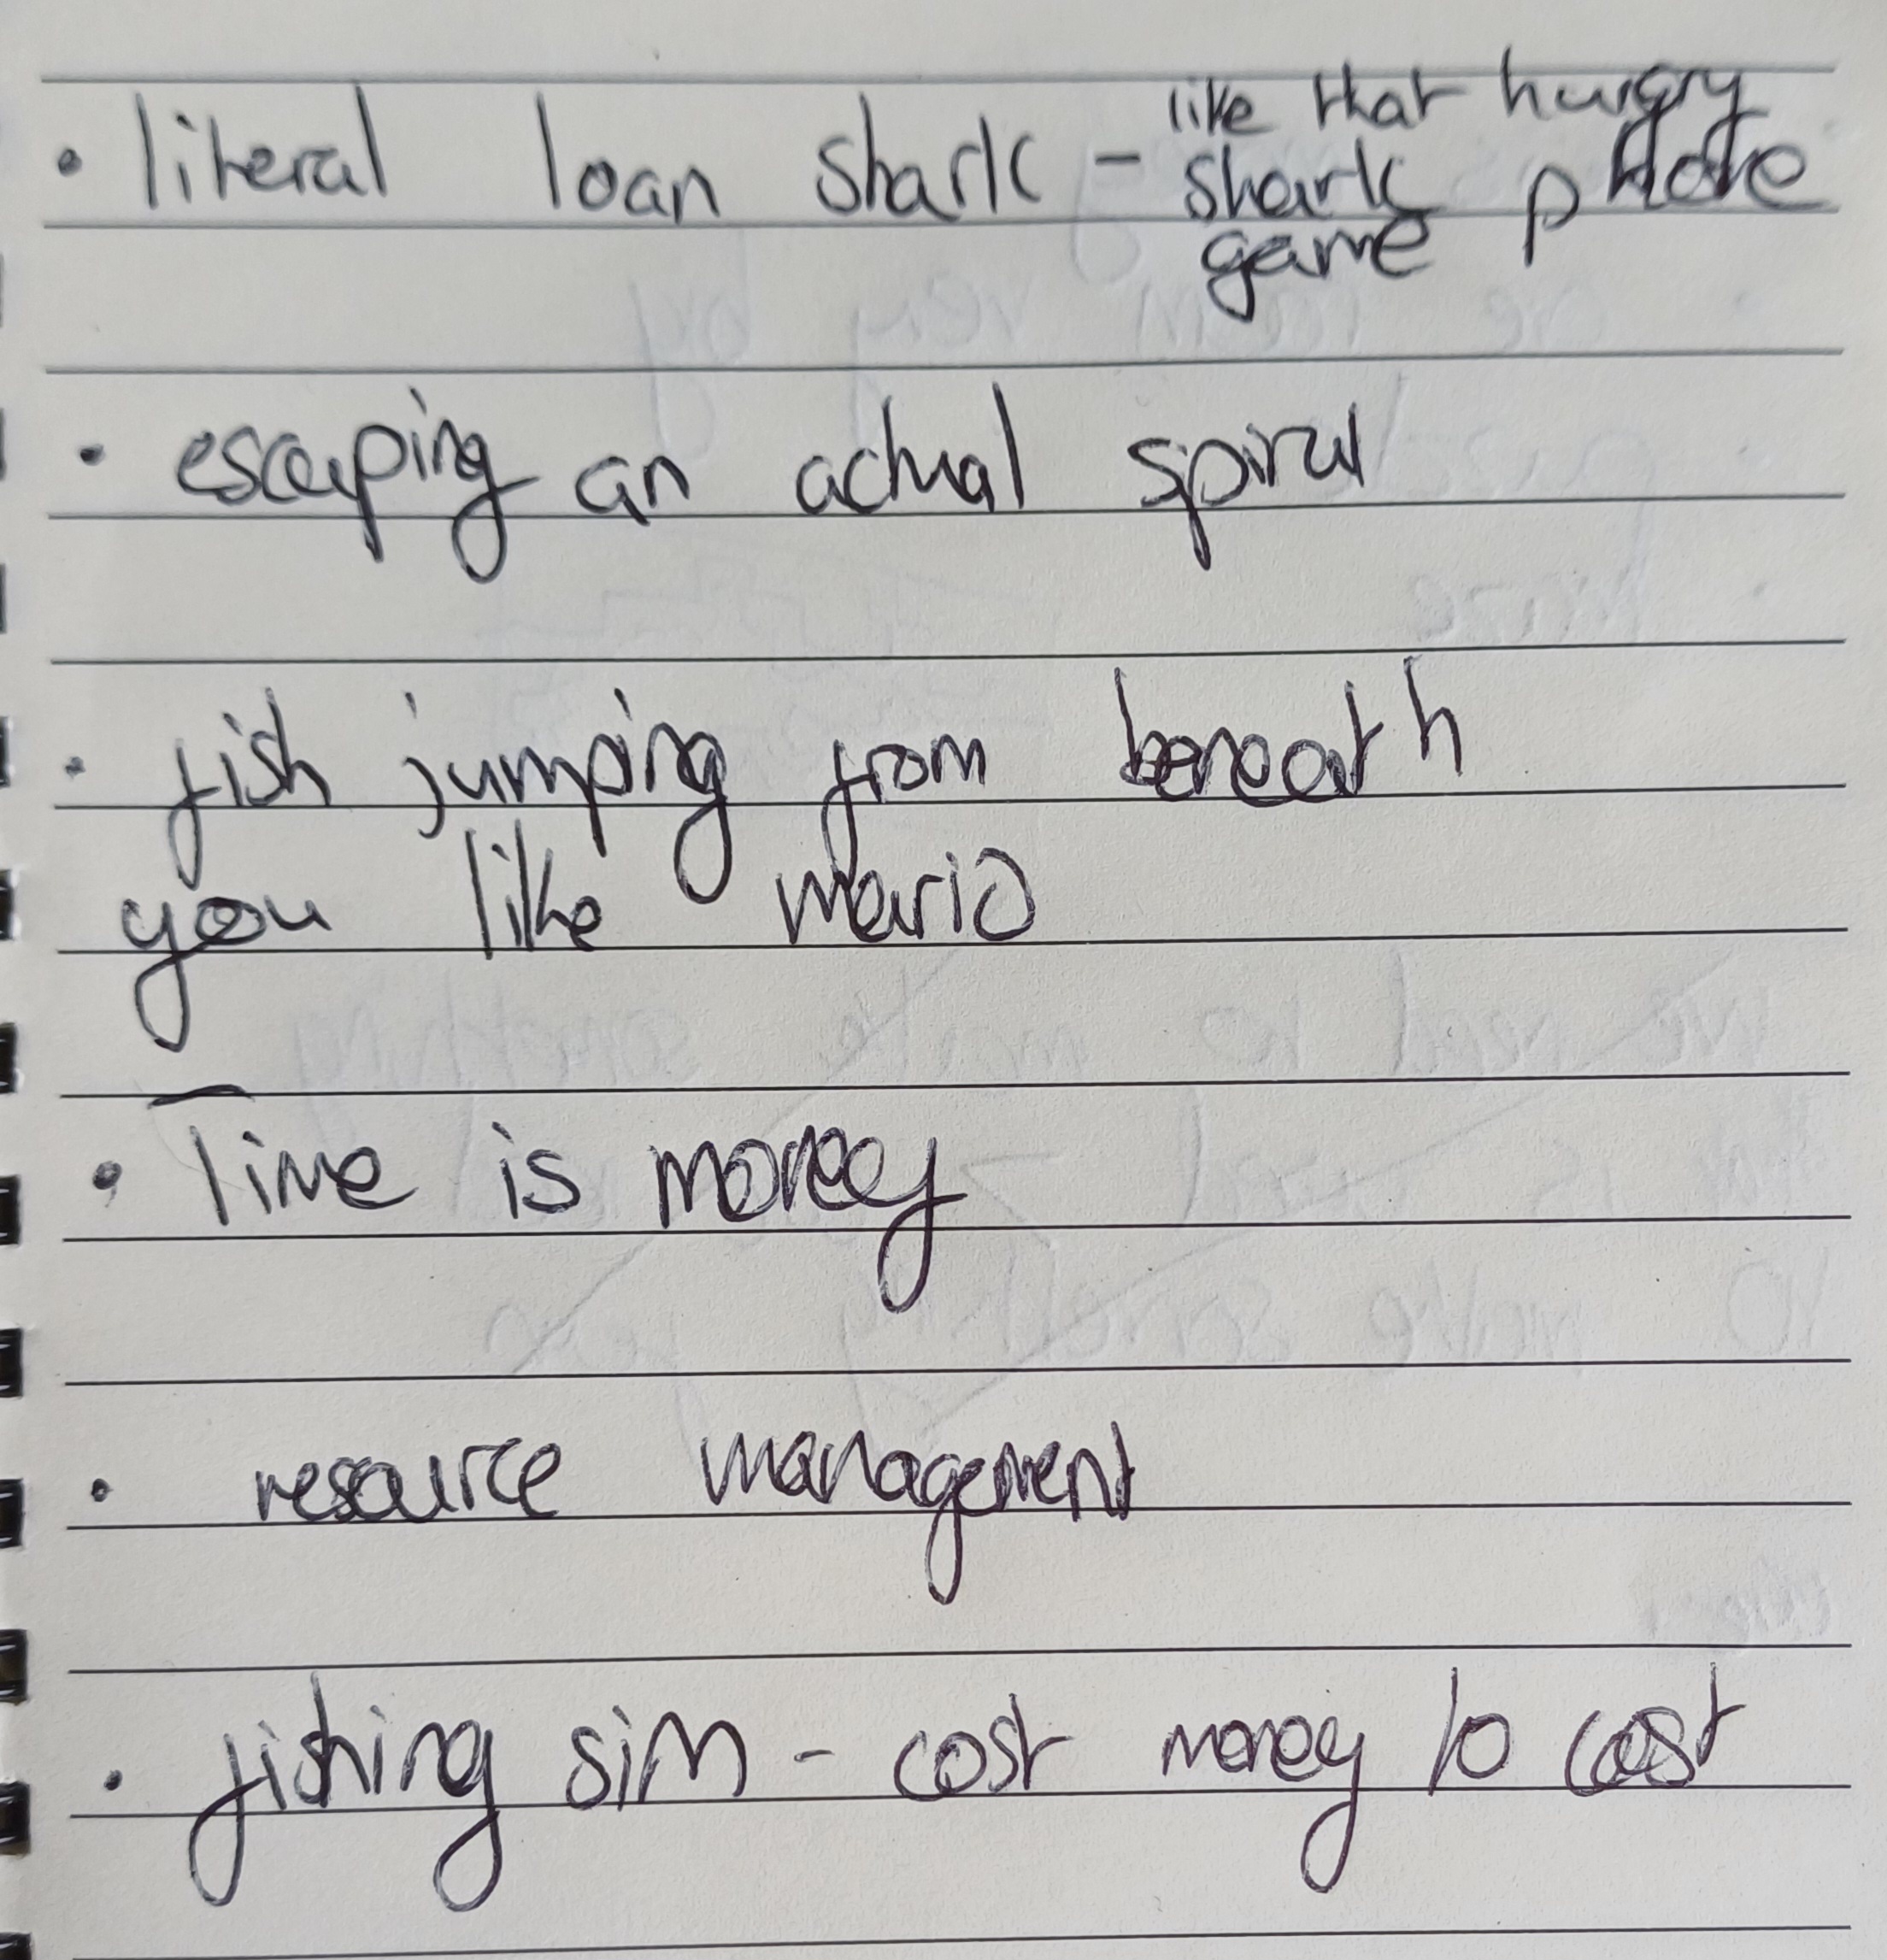 like that hungry
• literal loan shark - shark phone
game
• escaping an actual spiral
• fish jumping from beneath
you like mario
• Time is money
• resource management
• fishing sim - cost money to cast